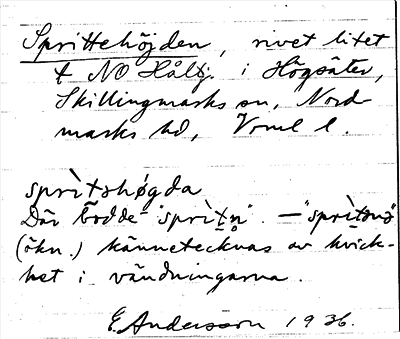 Sprittehöjden, rivet litet
t NO Håltj. i Högsäter,
Skillingmarks sn, Nord-
marks hd, Vrml l.
sprìtshøgda
Där bodde "sprìtn". — "sprìtnş"
(ökn.) kännetecknas av kvick-
het i vändningarna.
E. Andersson 1936.